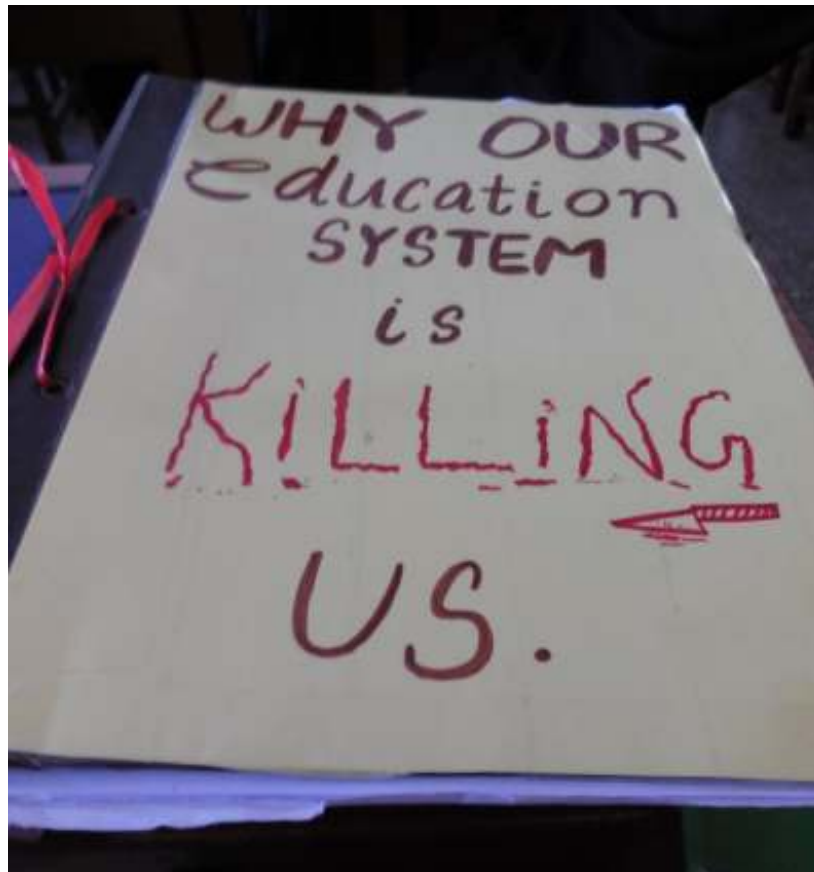 WHY OUR
education
SYSTEM
is
KiLLiNG
US.